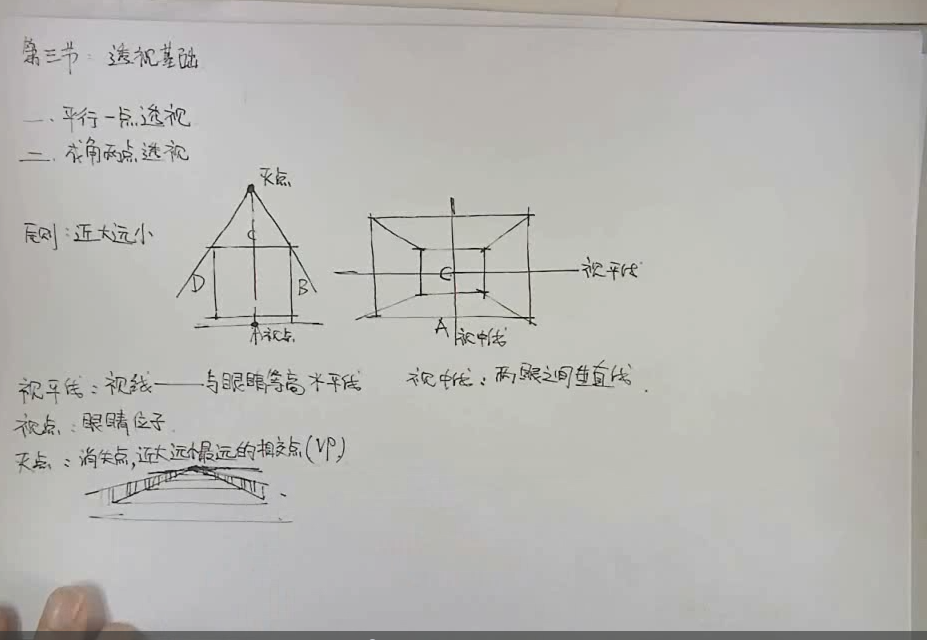 第三节：透视基础
一、平行一点透视
二、成角两点透视
灭点
原则：近大远小
C
D
B
视点
C
视平线
A
视中线
视平线：视线——与眼睛等高水平线
视中线：两眼之间垂直线.
视点：眼睛位子.
灭点：消失点,近大远小最远的相交点(VP)